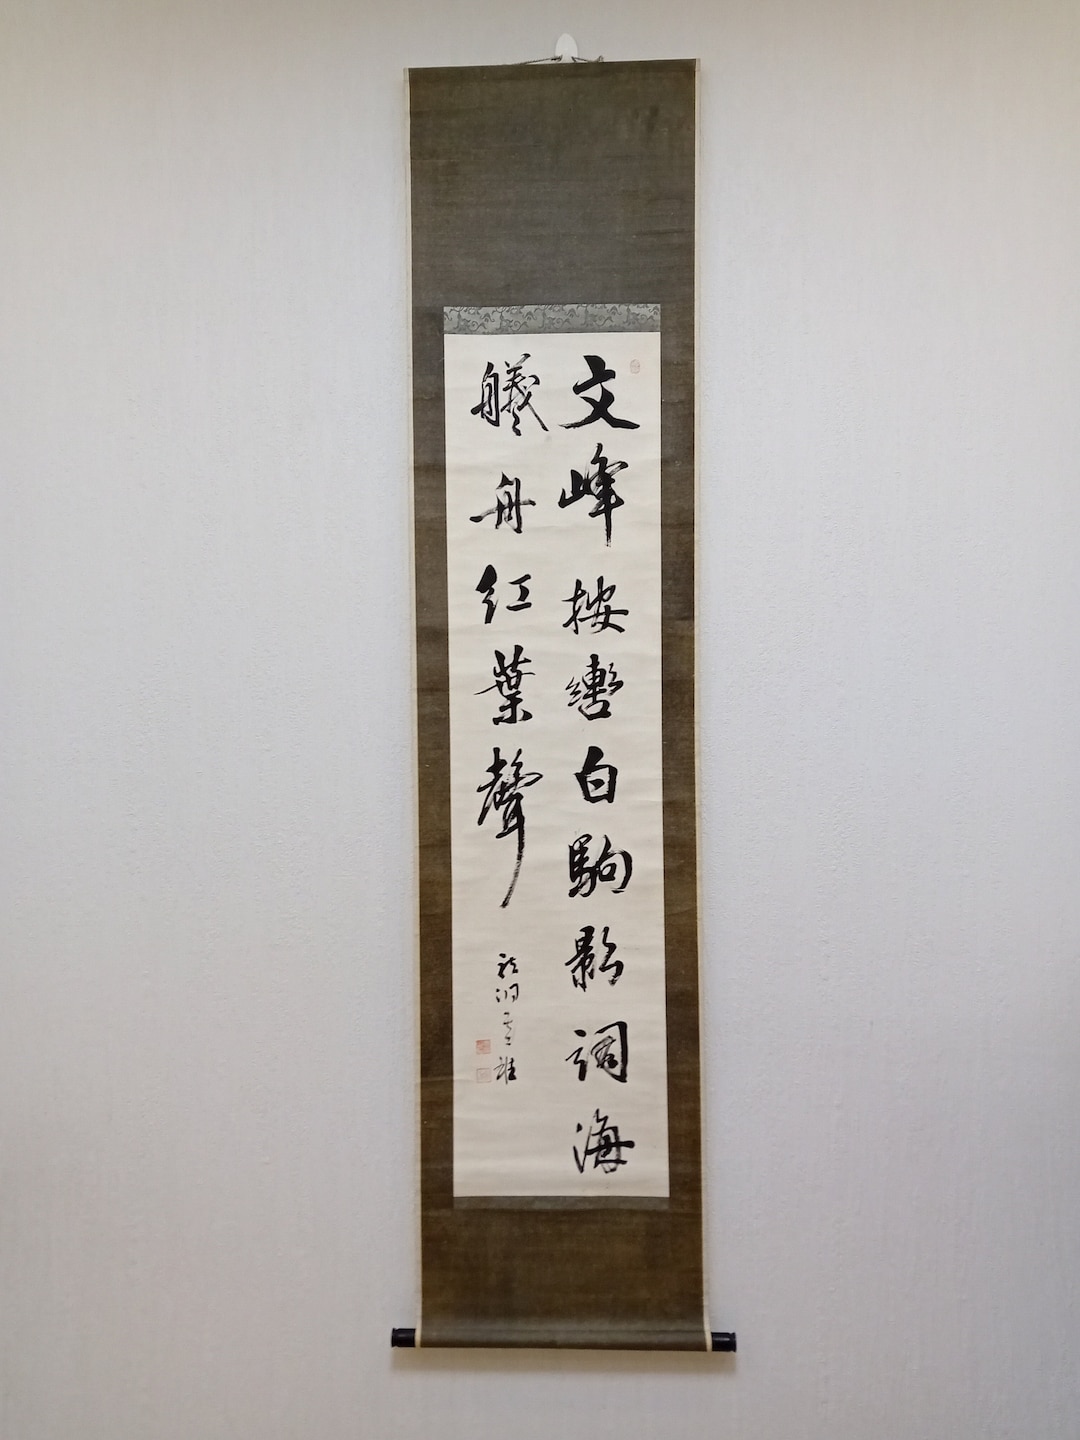 文峰按轡白駒影詞海
艤舟紅葉聲